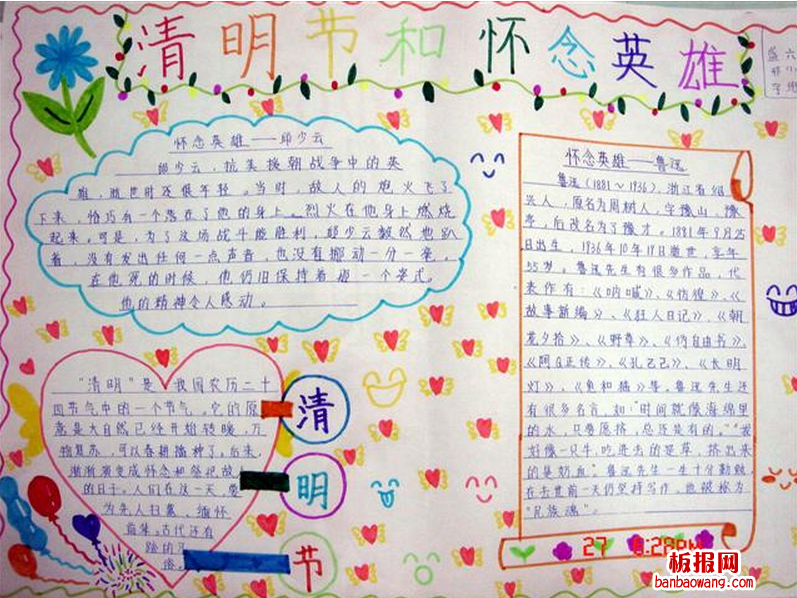 清明节和怀念英雄
盛六
怀念英雄——邱少云
邱少云，抗美援朝战争中的英
雄，逝世时还很年轻。当时，敌人的炮火飞了
下来，恰巧有一个落在了他的身上。烈火在他身上燃烧
起来。可是，为了这场战斗能胜利，邱少云毅然地趴
着，没有发出任何一点声音，也没有挪动一分一毫。
在他死的时候，他仍旧保持着这一个姿式。
他的精神令人感动。
怀念英雄——鲁迅
鲁迅（1881～1936），浙江省绍
兴人，原名为周树人，字豫山，豫
亭，后改名为了豫才。1881年9月25
日出生，1936年10年19日逝世，享年
55岁。鲁迅先生有很多作品，代
表作有：《呐喊》、《彷徨》、《
故事新编》、《狂人日记》、《朝
花夕拾》、《野草》、《伪自由书》、
《阿Q正传》、《孔乙己》、《长明
灯》、《兔和猫》等。鲁迅先生还
有很多名言，如“时间就像海绵里
的水，只要愿挤，总还是有的。”“我
好像一只牛，吃进去的是草，挤出来
的是奶血”鲁迅先生一生十分勤勉，
在去世前一天仍坚持写作。他被称为
“民族魂”。
“清明”是我国农历二十
四节气中的一个节气。它的原
意是大自然已经开始转暖，万
物复苏，可以春耕播种了。后来，
渐渐演变成怀念和祭祀故人
的日子。人们在这一天，要
为先人扫墓、缅怀
英雄。古代还有
踏的习
俗。
清
明
节
27 8:28PM
板报网
banbaowang.com